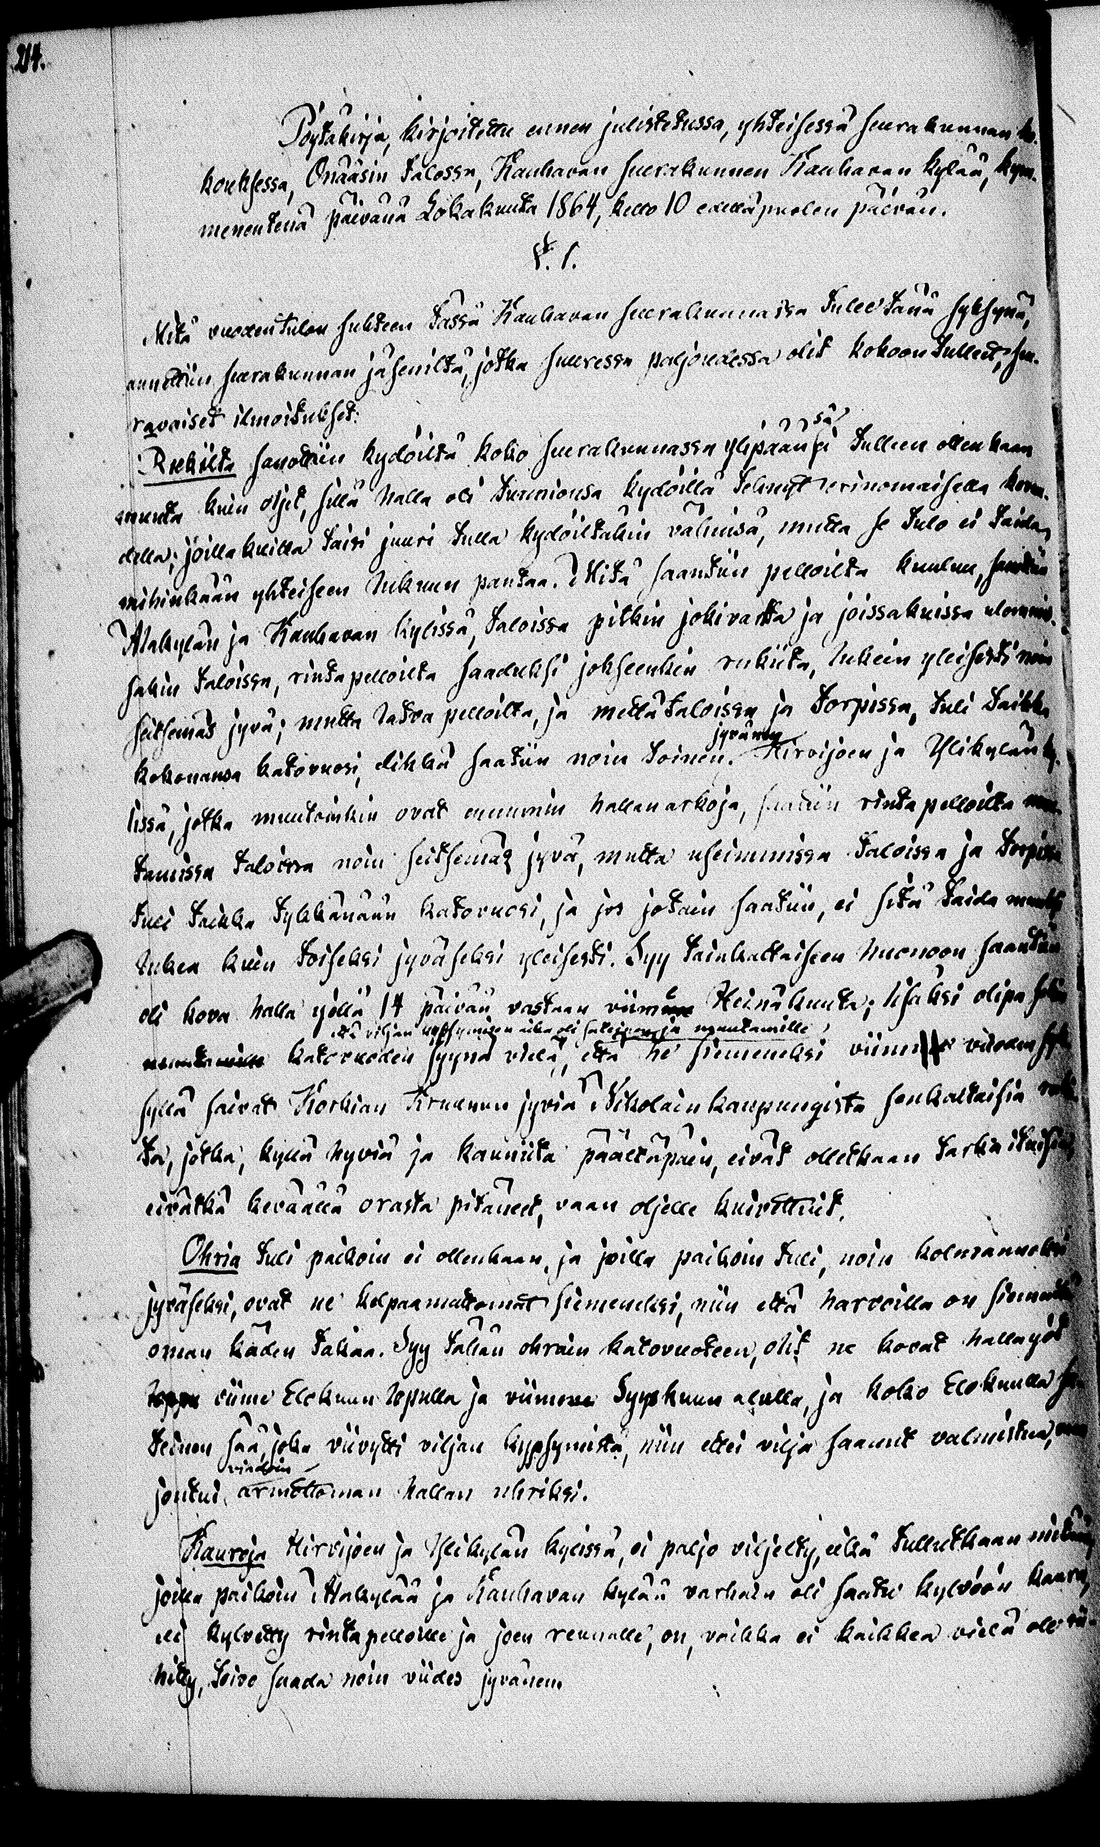 214.
Pöytäkirja, kirjoitettu ennen julistetussa, yhteisessä seurakunnan ko-
kouksessa, Onääsin talossa, Kauhavan seurakunnan Kauhavan kylää, kym-
menentenä päivänä Lokakuuta 1864, kello 10 edellä puolen päivän.
§. 1.
Mitä vuoden tulon suhteen tässä Kauhavan seurakunnassa tulee tänä syksynä,
annettiin seurakunnan jäseniltä, jotka suuressa paljoudessa olit kokoon tulleet, seu-
raavaiset ilmoitukset:
Rukiita sanottiin kydöiltä koko seurakunnassa ylipäänsä tulleen ollenkaan
muuta kuin oljet, sillä halla oli turmionsa kydöillä tehnyt erinomaisella kovuu-
della; joillakuilla taisi juuri tulla kydöiltäkin vähäisä, mutta se tulo ei taida
mihinkään yhteiseen lukuun pantaa. Mitä saantiin pelloilta kuuluu, saatiin
Alakylän ja Kauhavan kylissä, taloissa pitkin jokivartta ja joissakuissa
sakin taloissa, rintapelloilta saaduksi jokseenkin rukiita, lukein yleisesti noin
seitsemäs jyvä; mutta latvapelloilta, ja mettätaloissa ja torpissa, tuli taikka
kokonansa katovuosi, elikkä saatiin noin toinen jyvänen. Hirvijoen ja Ylikylän ky-
lissä, jotka muutoinkin ovat enemmin hallanarkoja, saatiin rintapelloilta muu-
tamissa taloissa noin seitsemäs jyvä, mutta useimmissa taloissa ja torpissa
tuli taikka tykkänään katovuosi, ja jos jotain saatiin, ei sitä taida muuksi
lukea kuin toiseksi jyväseksi yleisesti. Syy tainkaltaiseen huonoon saantiin
oli kova halla yöllä 14 päivää vastaan viime Heinäkuuta; lisäksi olipa
että viljan kypsymisen aika oli sateinen, ja muutamille
katovuoden syynä vielä, että he siemeneksi viime vuoden syk-
syllä saivat Korkian Kruunun jyviä Nikolainkaupungista senkaltaisia rukii-
ta, jotka, kyllä hyviä ja kauniita päältäpäin, eivät olletkaan tarkkaitusia,
eivätkä keväällä orasta pitäneet, vaan oljelle kuivettuit.
Ohria tuli paikoin ei ollenkaan, ja joilla paikoin tuli, noin kolmanneksi
jyväseksi, ovat ne kelpaamattomat siemeneksi, niin että harvoilla on siementä
oman käden takaa. Syy tähän ohrain katovuoteen, olit ne kovat hallayöt
viime Elokuun lopulla ja viimeis Syyskuun alulla, ja koko Elokuulla sa-
teinen sää, joka viivytti viljan kypsymistä, niin ettei vilja saanut valmistua, vaan
joutui viimein armottoman hallan uhriksi.
Kauroja Hirvijoen ja Ylikylän kylissä, ei paljo viljelty, eikä tullutkaan mitään,
joilla paikoin Alakylää ja Kauhavan kylää varhain oli saatu kylvöön kaura,
eli kylvetty rintapelloille ja joen reunalle, on, vaikka ei kaikkea vielä ole rii-
hitty, toivo saada noin viides jyvänen.